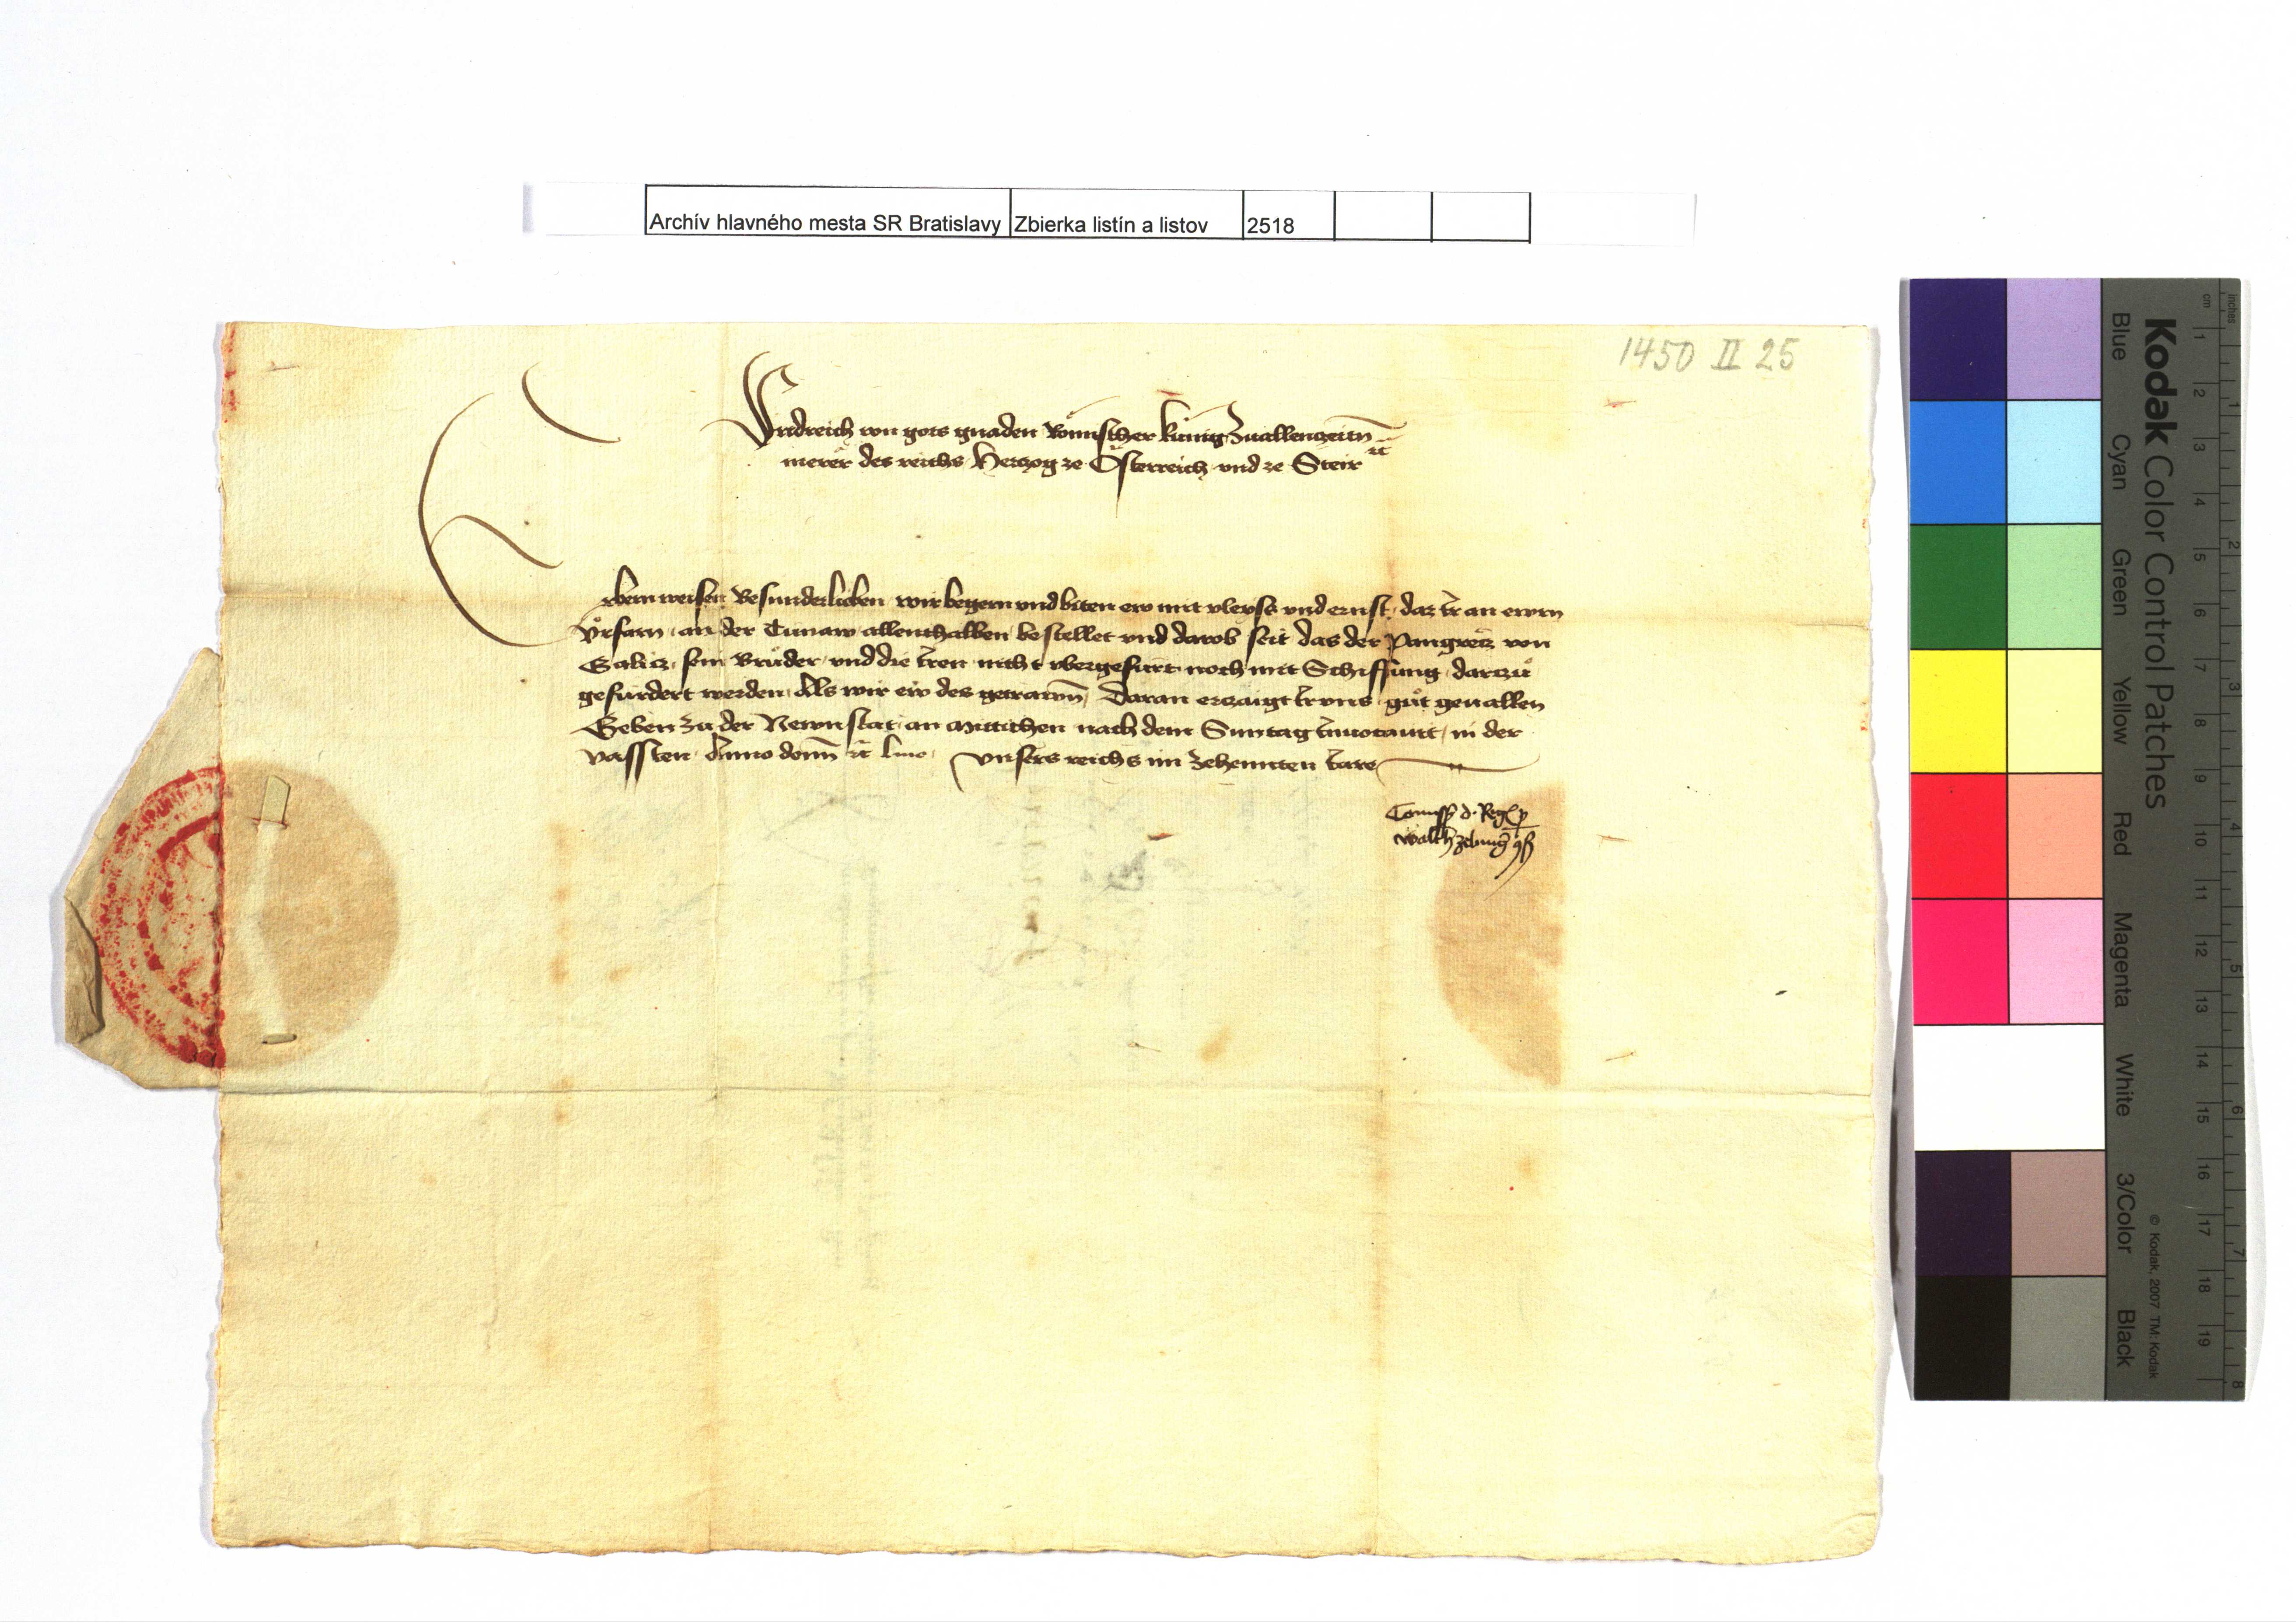 Archív hlavného mesta SR Bratislavy Zbierka listín a listov 2518
1450 II 25
Fridreich von gots gnaden Römischer kunig Zuallenczeiten
merer des reichs Herczog ze Österreich vnd ze Steir etc
Erbern weisen Besunderlieben wir begern vnd biten ew mit vleyss vnd ernst, daz Ir an ewrn
Vrfarn, an der Tunaw allenthalben bestellet vnd darob seit das der Pangrecz von
Galicz, sein Bruder, vnd die Iren nicht vbergefurt noch mit Schiffung darczů
gefurdert werden, Als wir ew des getrawn, Daran erczaigt Ir vns gůt geuallen
Geben zu der Newnstat, an Mittichen nach dem Sunntag Inuocauit, in der
vassten, Anno domini etc Lmo, vnsers reichs im zehennten Iare
Comissio d. Regis p
Kodak Color Control Patches
Blue Cyan Green Yellow Red Magenta White 3/Color Black
© Kodak, 2007 TM: Kodak
cm 1 2 3 4 5 6 7 8 9 10 11 12 13 14 15 16 17 18 19
inches 1 2 3 4 5 6 7 8